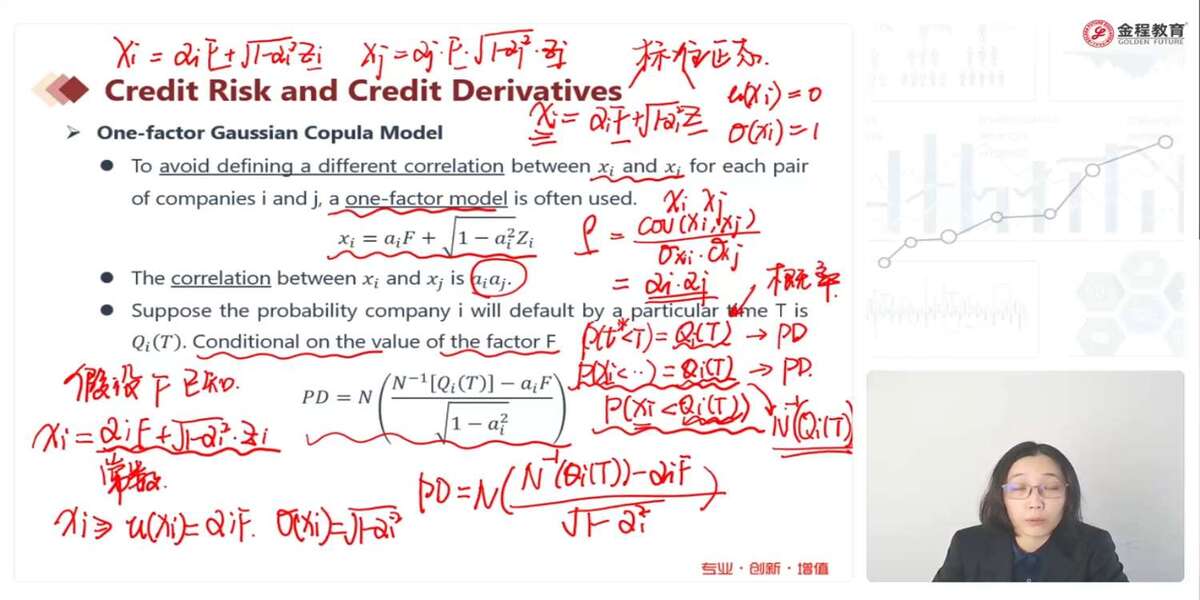 xi = aiF + √1-ai² Zi   xj = aj·F·√1-aj²·Zj   标准正态.
金程教育
GOLDEN FUTURE
Credit Risk and Credit Derivatives
u(xi) = 0
xi = aiF + √1-ai² Z
σ(xi) = 1
➢ One-factor Gaussian Copula Model
● To avoid defining a different correlation between xi and xj for each pair
of companies i and j, a one-factor model is often used.
xi xj
xi = aiF + √1 − ai² Zi
ρ = cov(xi, xj) / σxi·σxj
● The correlation between xi and xj is aiaj.
= ai·aj
概率
● Suppose the probability company i will default by a particular time T is
Qi(T). Conditional on the value of the factor F
P(t*<T) = Qi(T) → PD
P(xi<··) = Qi(T) → PD.
假设 F 已知.
PD = N( (N⁻¹[Qi(T)] − aiF) / √1 − ai² )
P(xi < Qi(T))
N⁻¹(Qi(T)
xi = aiF + √1-ai²·Zi
常数.
PD = N( (N⁻¹(Qi(T)) - aiF) / √1-ai² )
xi ⇒ u(xi) = aiF. σ(xi) = √1-ai²
专业·创新·增值